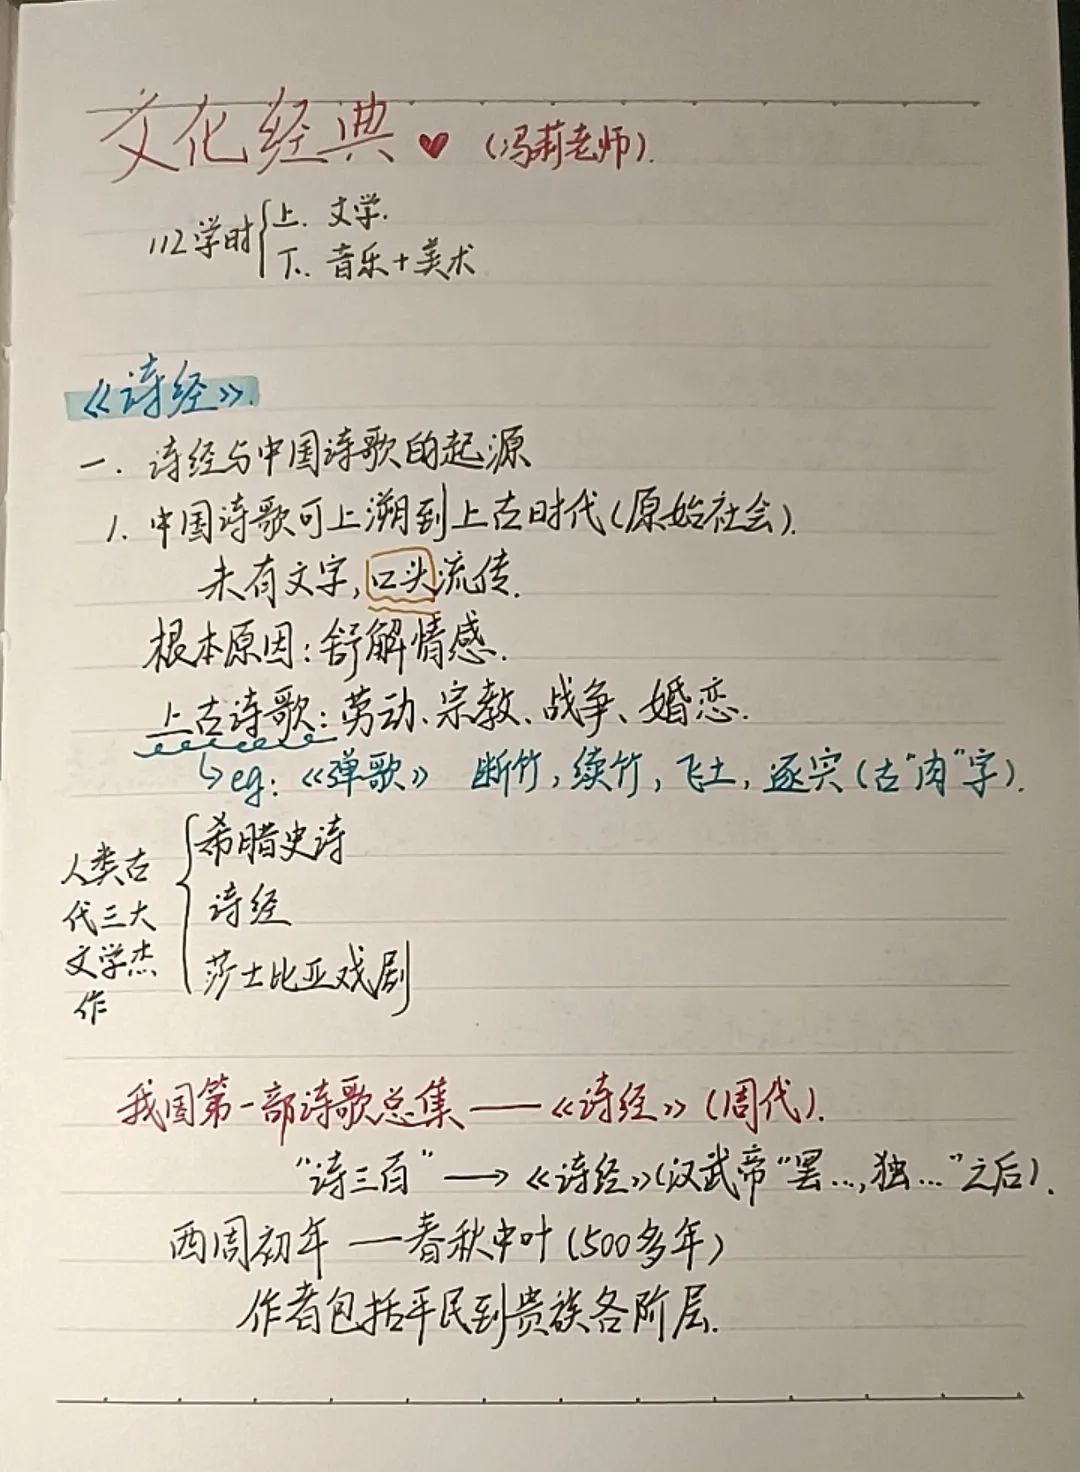 文化经典 ♥ (冯莉老师).
112学时 { 上. 文学.
下. 音乐+美术
《诗经》.
一. 诗经与中国诗歌的起源
1. 中国诗歌可上溯到上古时代(原始社会).
未有文字, 口头流传.
根本原因: 舒解情感.
上古诗歌: 劳动、宗教、战争、婚恋.
↳eg: 《弹歌》 断竹, 续竹, 飞土, 逐宍(古"肉"字).
人类古
代三大
文学杰
作
希腊史诗
诗经
莎士比亚戏剧
我国第一部诗歌总集——《诗经》(周代).
"诗三百" ⟶ 《诗经》(汉武帝"罢…,独…"之后).
西周初年 —春秋中叶(500多年)
作者包括平民到贵族各阶层.